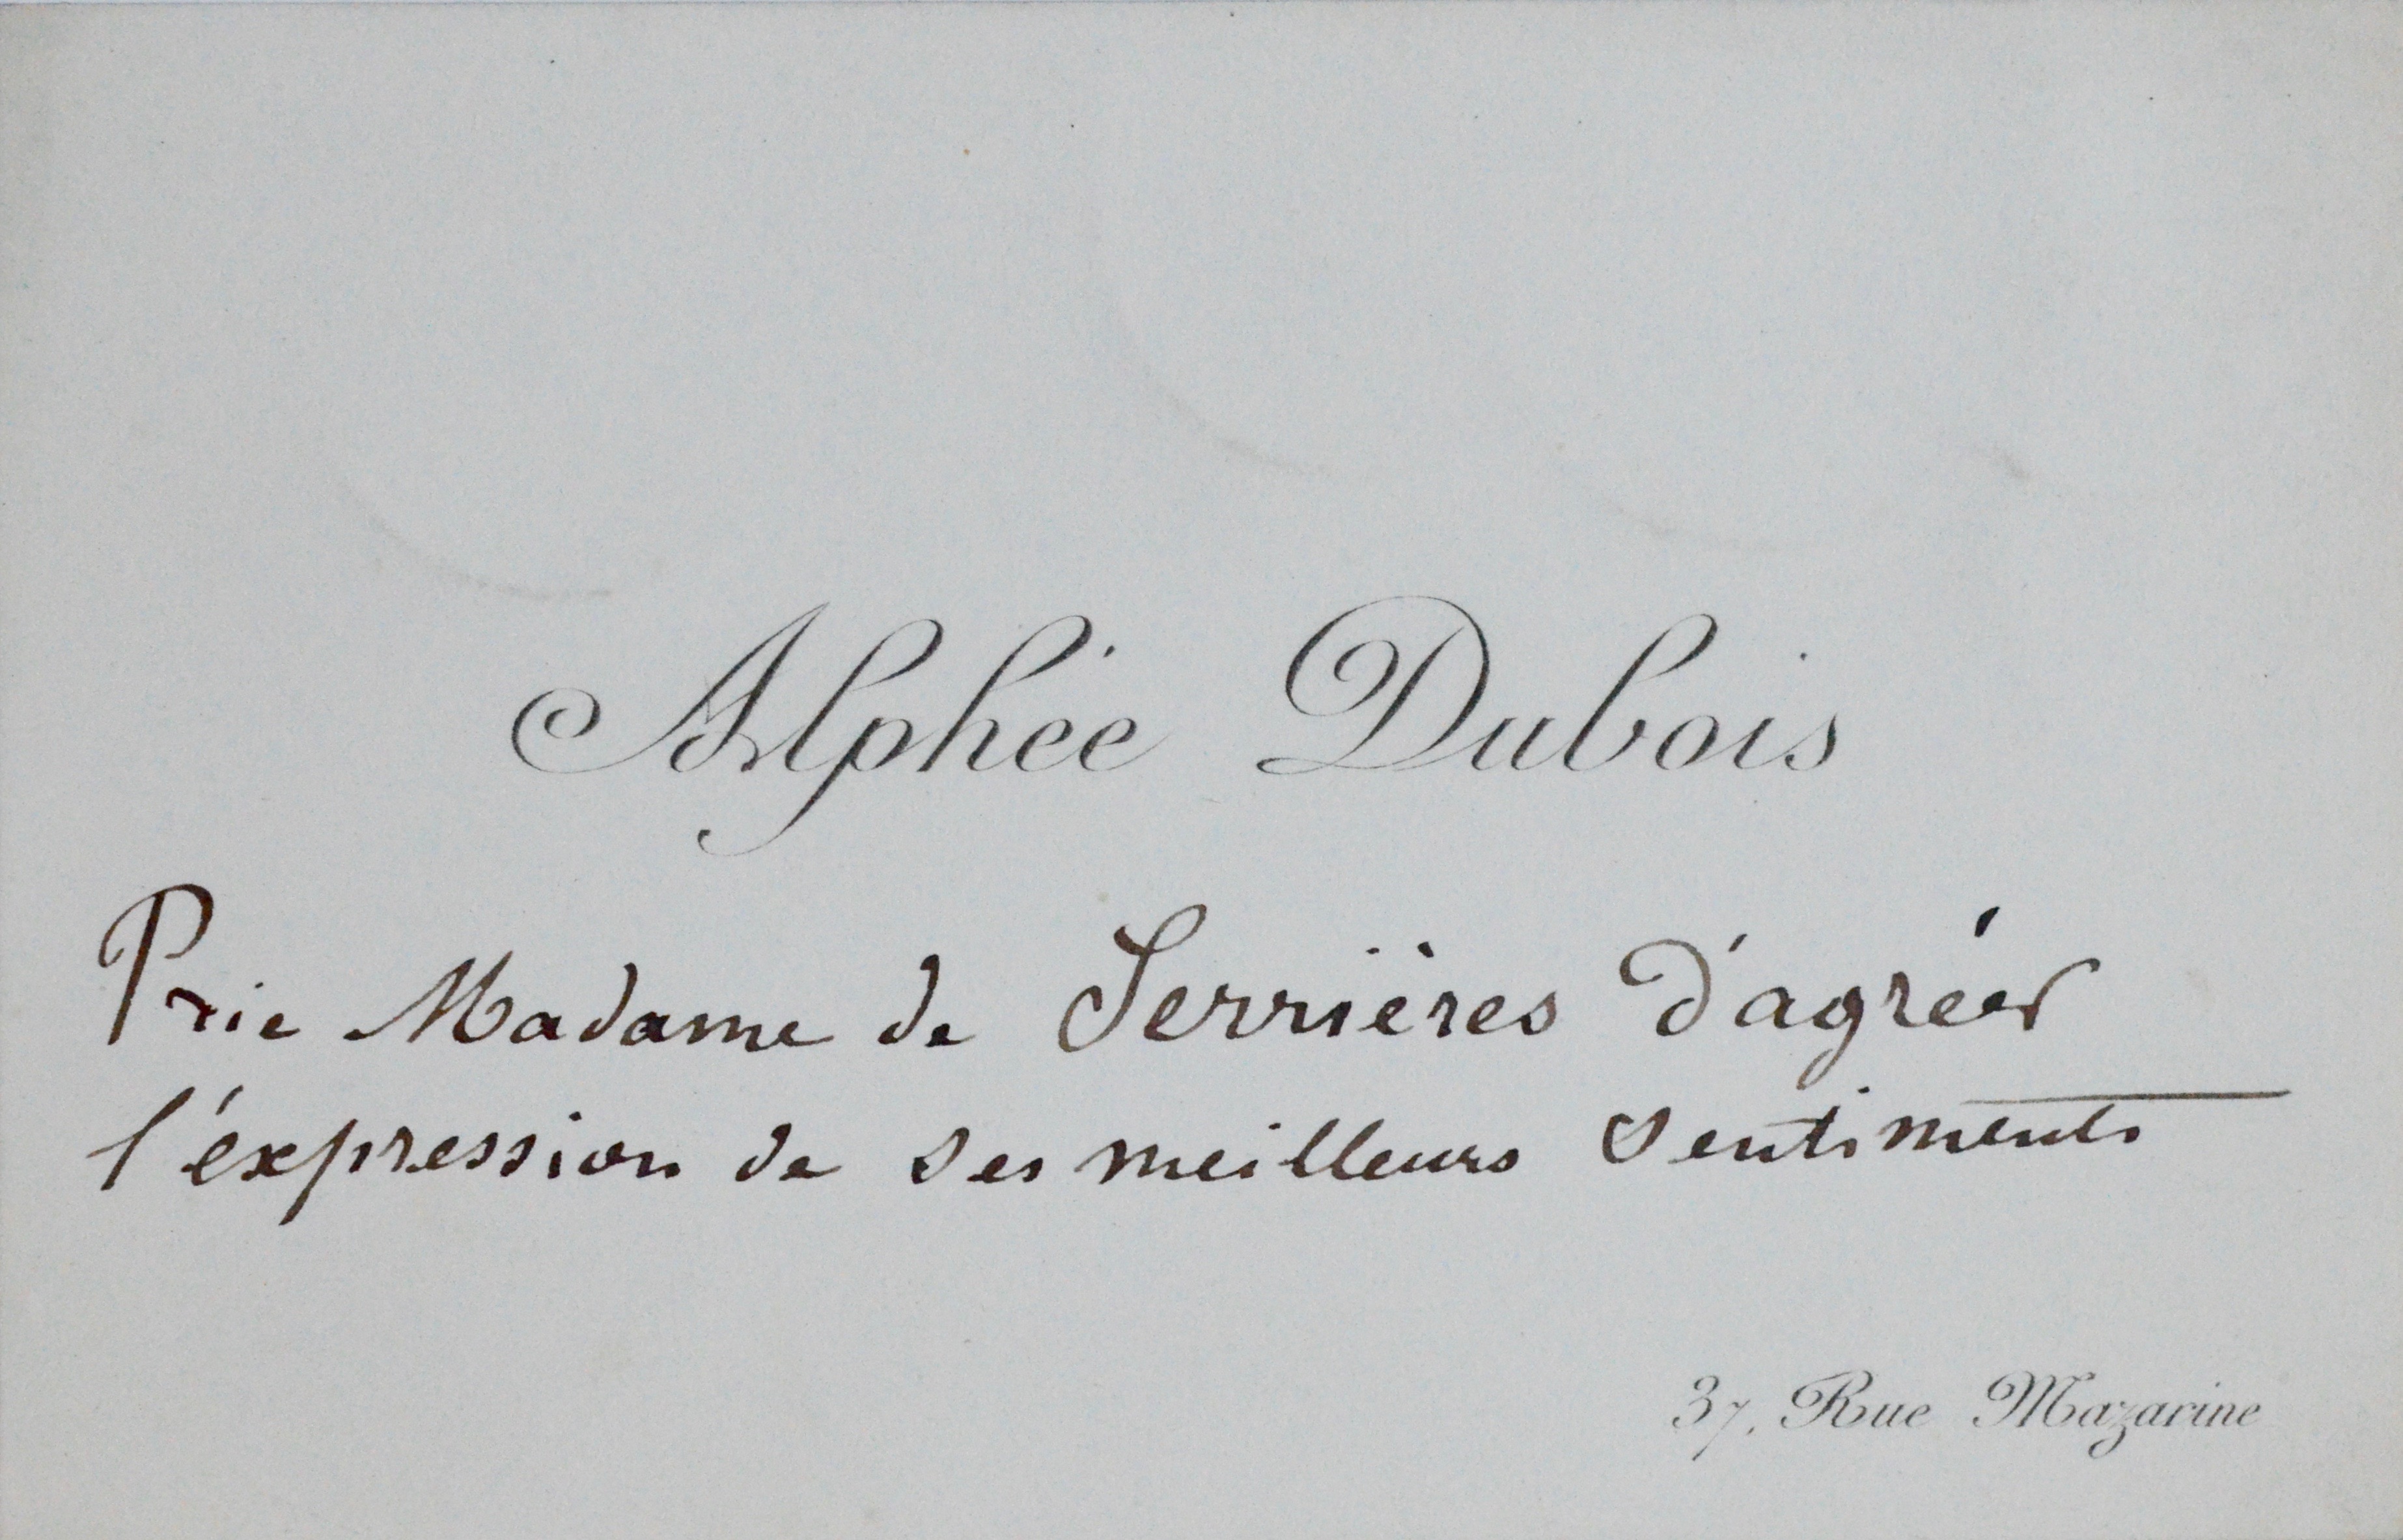 Alphée Dubois
Prie Madame de Serrières d'agréer
l'éxpression de ses meilleurs sentiments
37, Rue Mazarine